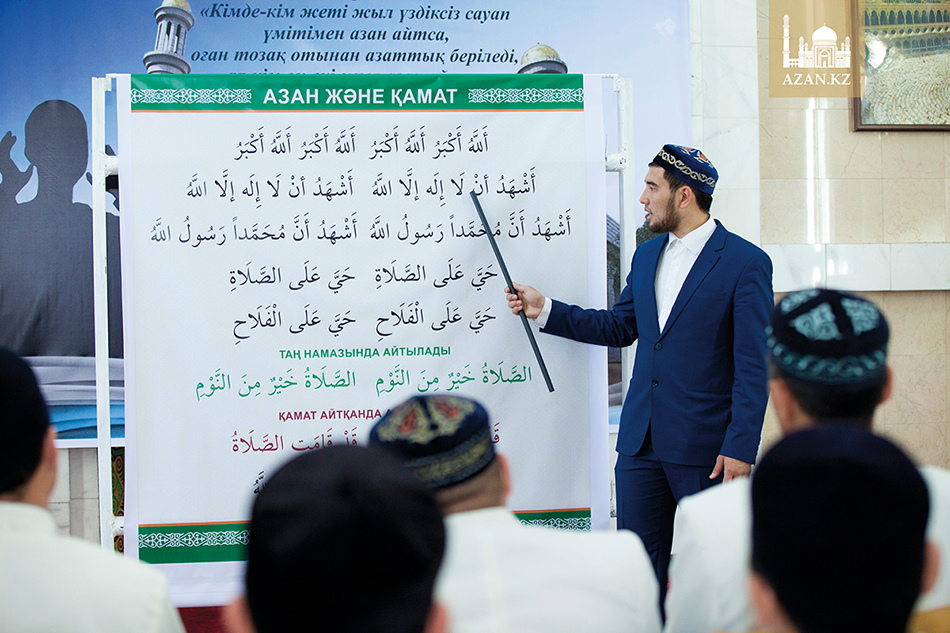 «Кімде-кім жеті жыл үздіксіз сауап
үмітімен азан айтса,
оған тозақ отынан азаттық беріледі,
AZAN.KZ
АЗАН ЖӘНЕ ҚАМАТ
اَللَّهُ أَكْبَرُ اَللَّهُ أَكْبَرُ اَللَّهُ أَكْبَرُ اَللَّهُ أَكْبَرُ
أَشْهَدُ أنْ لَا إِلَه إلَّا اللَّهُ أَشْهَدُ أنْ لَا إِلَه إلَّا اللَّهُ
أَشْهَدُ أَنَّ مُحَمَّداً رَسُولُ اللَّهُ أَشْهَدُ أَنَّ مُحَمَّداً رَسُولُ اللَّهُ
حَيَّ عَلَى الصَّلَاةِ حَيَّ عَلَى الصَّلَاةِ
حَيَّ عَلَى الْفَلَاحِ حَيَّ عَلَى الْفَلَاحِ
ТАҢ НАМАЗЫНДА АЙТЫЛАДЫ
الصَّلَاةُ خَيْرٌ مِنَ النَّوْمِ الصَّلَاةُ خَيْرٌ مِنَ النَّوْمِ
ҚАМАТ АЙТҚАНДА
قَدْ قَامَتِ الصَّلَاةُ